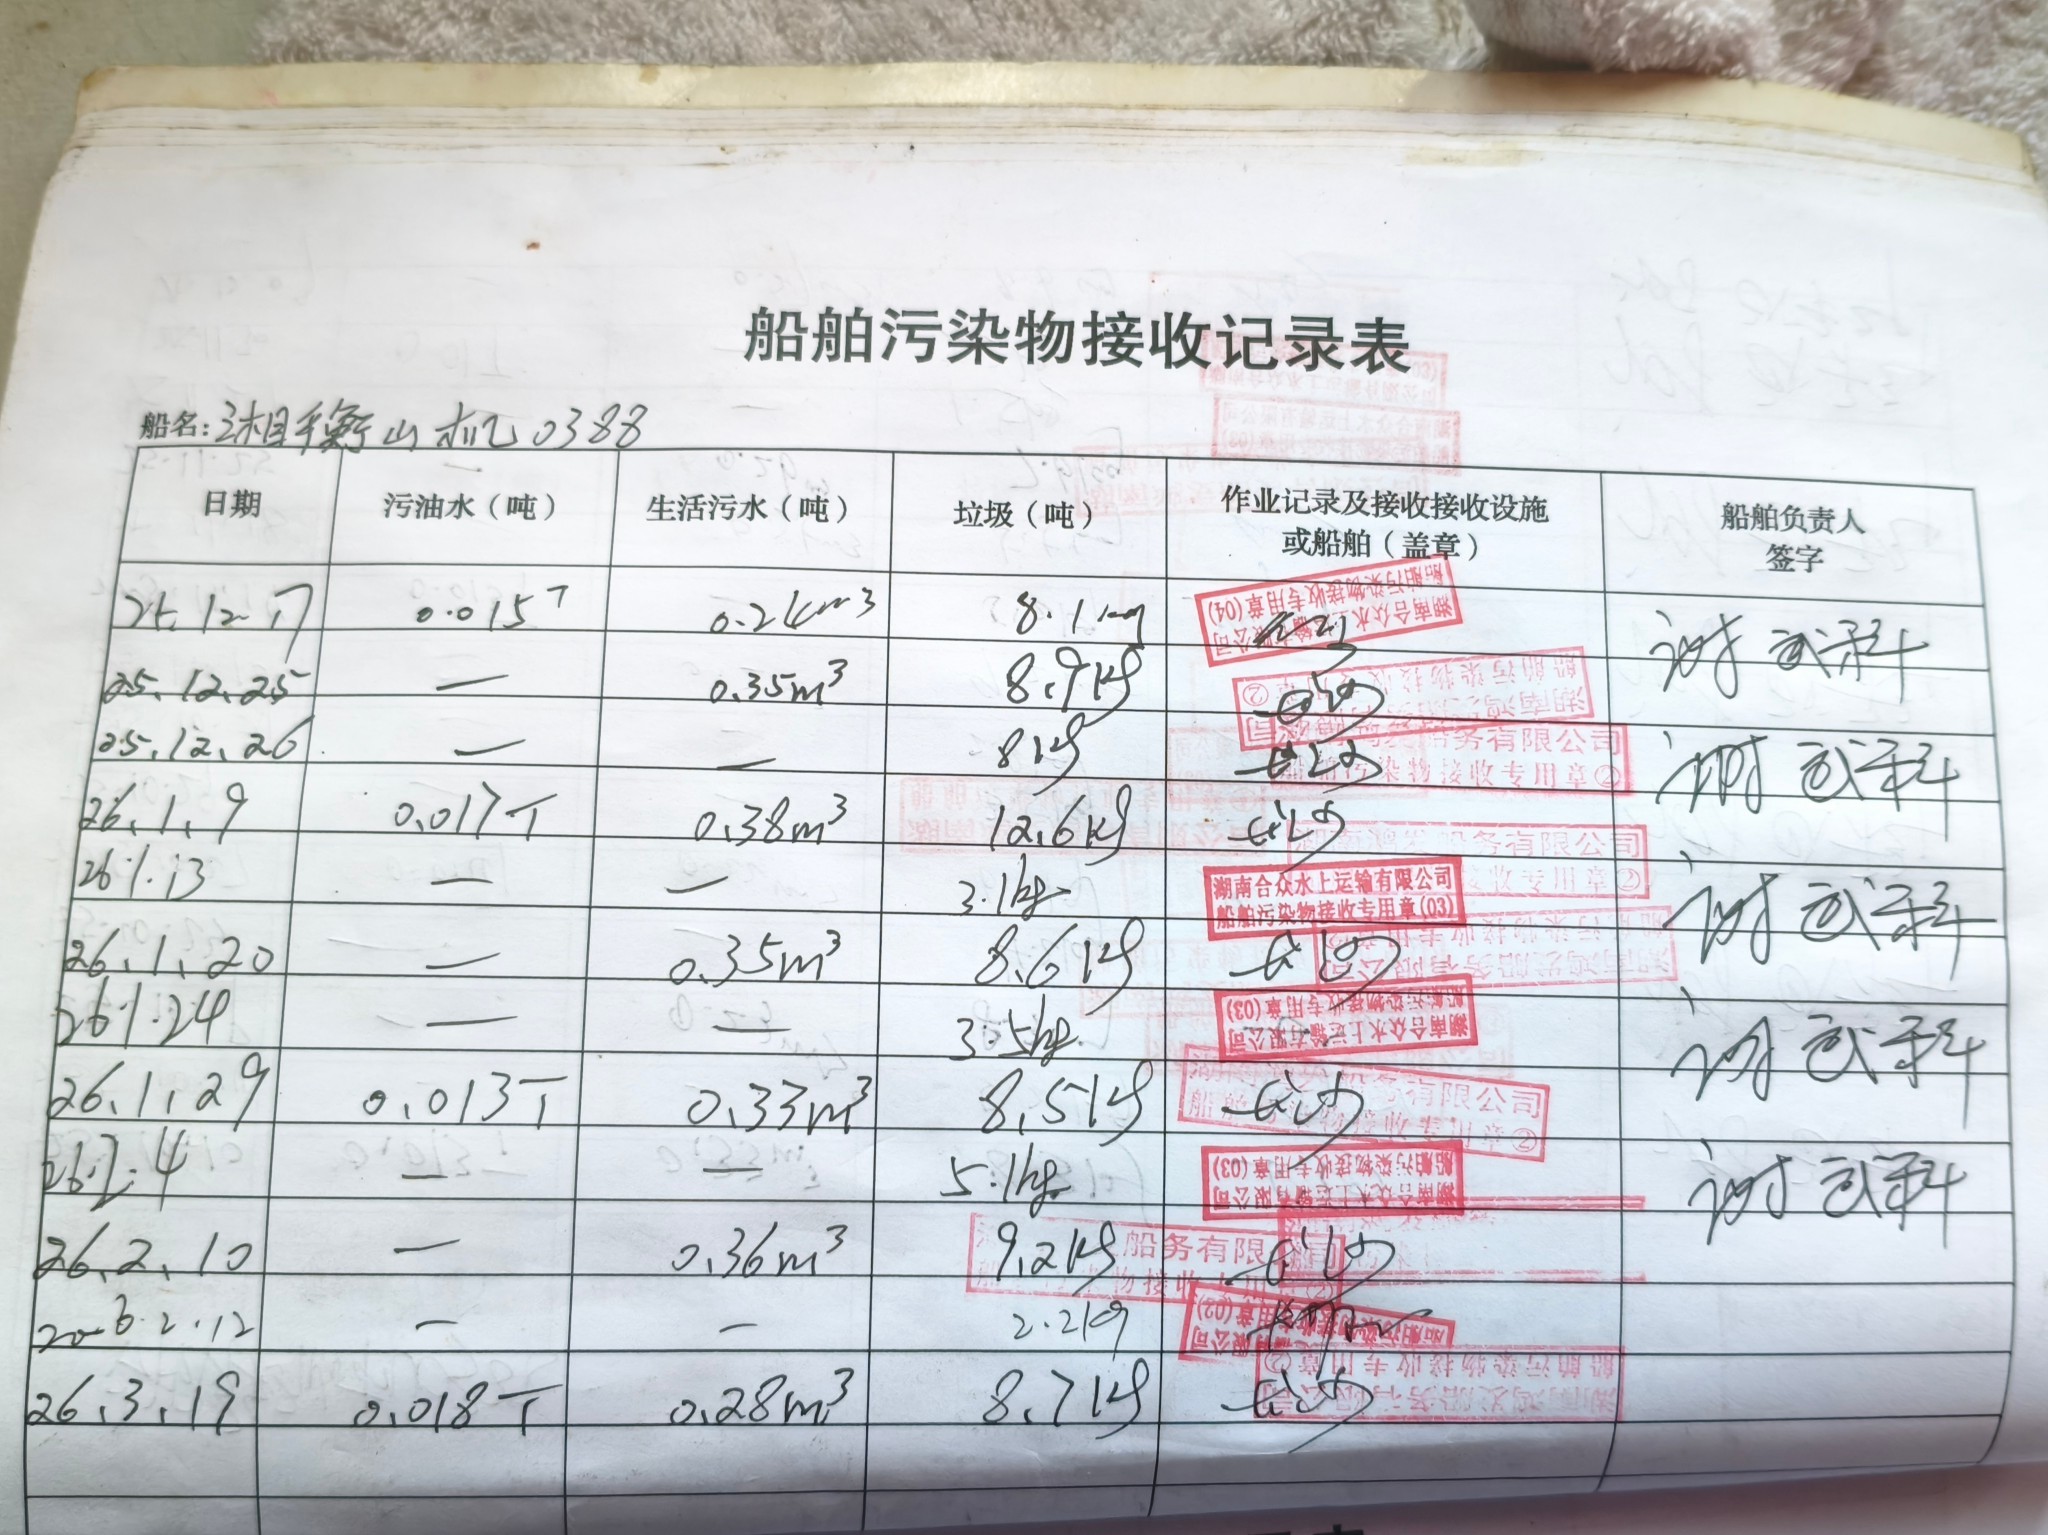 船舶污染物接收记录表
船名：湘衡山机0388
日期 污油水（吨） 生活污水（吨） 垃圾（吨） 作业记录及接收接收设施或船舶（盖章） 船舶负责人签字
0.015T 8.1
湖南合众水上运输有限公司
船舶污染物接收专用章(04)
25.12.25 — 0.35m³ 8.9kg 长沙
25.12.26 — — 8kg 长沙
船务有限公司
船舶污染物接收专用章②
26.1.9 0.017T 0.38m³ 12.6kg 长沙
船务有限公司
26.1.13 — — 3.1kg
湖南合众水上运输有限公司
船舶污染物接收专用章(03)
26.1.20 — 0.35m³ 8.6kg 长沙
26.1.24 — — 3.5kg
湖南合众水上运输有限公司
船舶污染物接收专用章(03)
26.1.29 0.013T 0.33m³ 8.5kg 长沙
26.2.4 — — 5.1kg
湖南合众水上运输有限公司
船舶污染物接收专用章(03)
26.2.10 — 0.36m³ 9.2kg 长沙
2026.2.12 — — 2.2kg
26.3.19 0.018T 0.28m³ 8.7kg 长沙